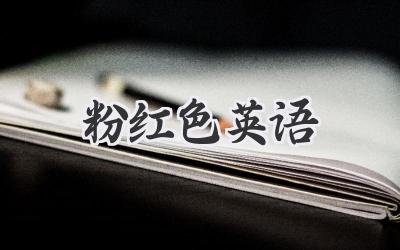 粉红色英语